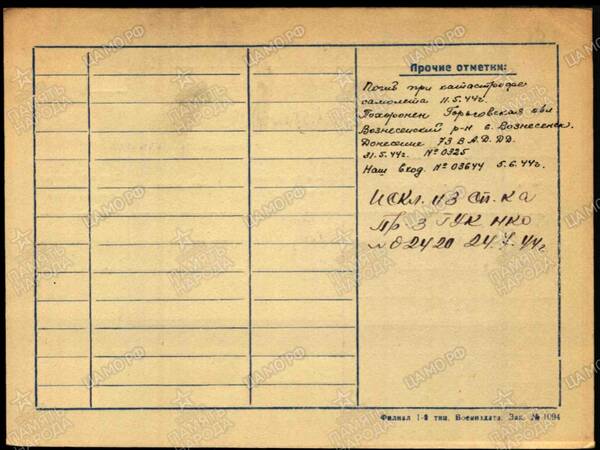 Прочие отметки:
Погиб при катастрофе
самолета 11.5.44г.
Похоронен Горьковская обл
Вознесенский р-н с. Вознесенск.
Донесение 73 В А.Д. ДД.
31.5.44г. № 0325
Наш вход. № 03644 5.6.44г.
Искл. из сп. ка
Пр. 3 ГУК НКО
№ 02420 24.7.44г
Филиал 1-й тип. Воениздата. Зак. № 1094